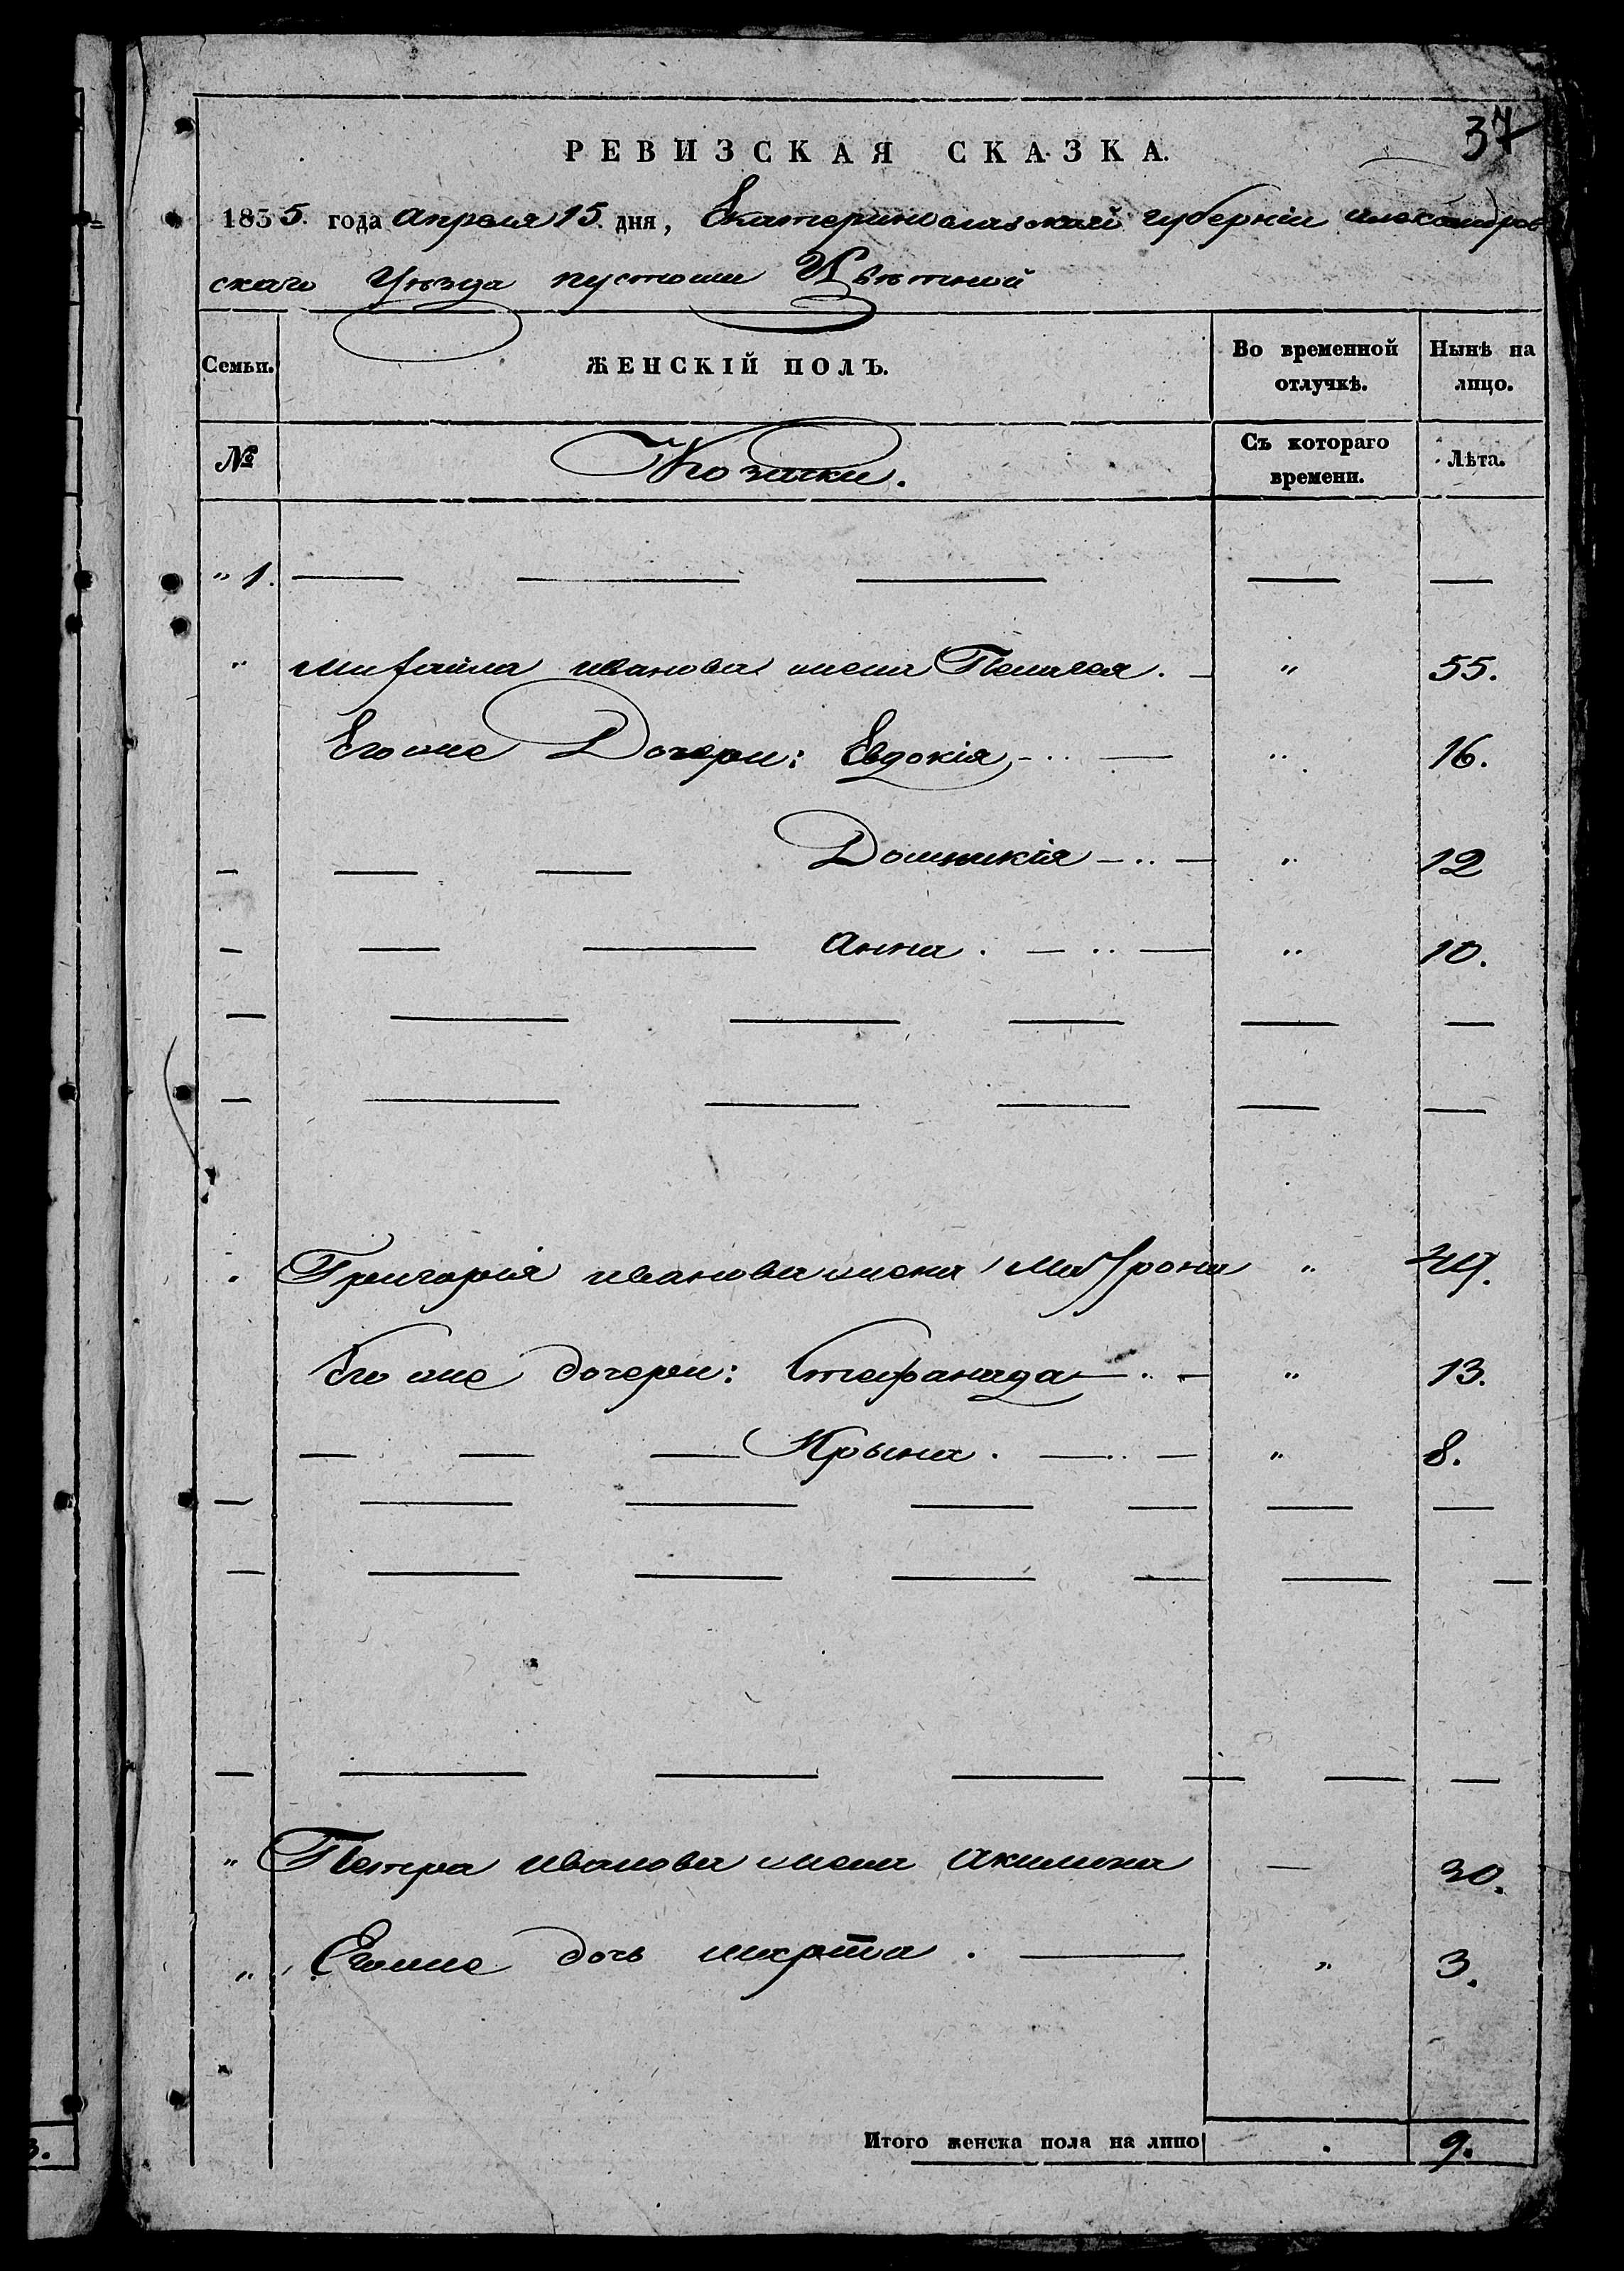 37
РЕВИЗСКАЯ СКАЗКА.
1835. года апреля 15. дня, Екатеринославской губернии александров
скаго Уѣзда пустоши Цвѣтной
Семьи.
ЖЕНСКІЙ ПОЛЪ.
Во временной отлучкѣ.
Нынѣ на лицо.
№
Козачки.
Съ котораго времени.
Лѣта.
" 1. — — — — —
" михайла иванова жена Пелагея. — " 55.
Его же Дочери: Евдокія, - .. — " 16.
— — — Домникія — .. — " 12
— — — анна. — .. — " 10.
— — — — — —
— — — — — —
" Григорія иванова жена Матрона " 44.
Его же дочери: Стефанида — .. — " 13.
— — — Ирына. — .. — " 8.
— — — — — — —
— — — — — — —
— — — — — — —
" Петра иванова жена акилина — 30.
" Его же дочь марта. — " 3.
Итого женска пола на лицо . 9.
3.